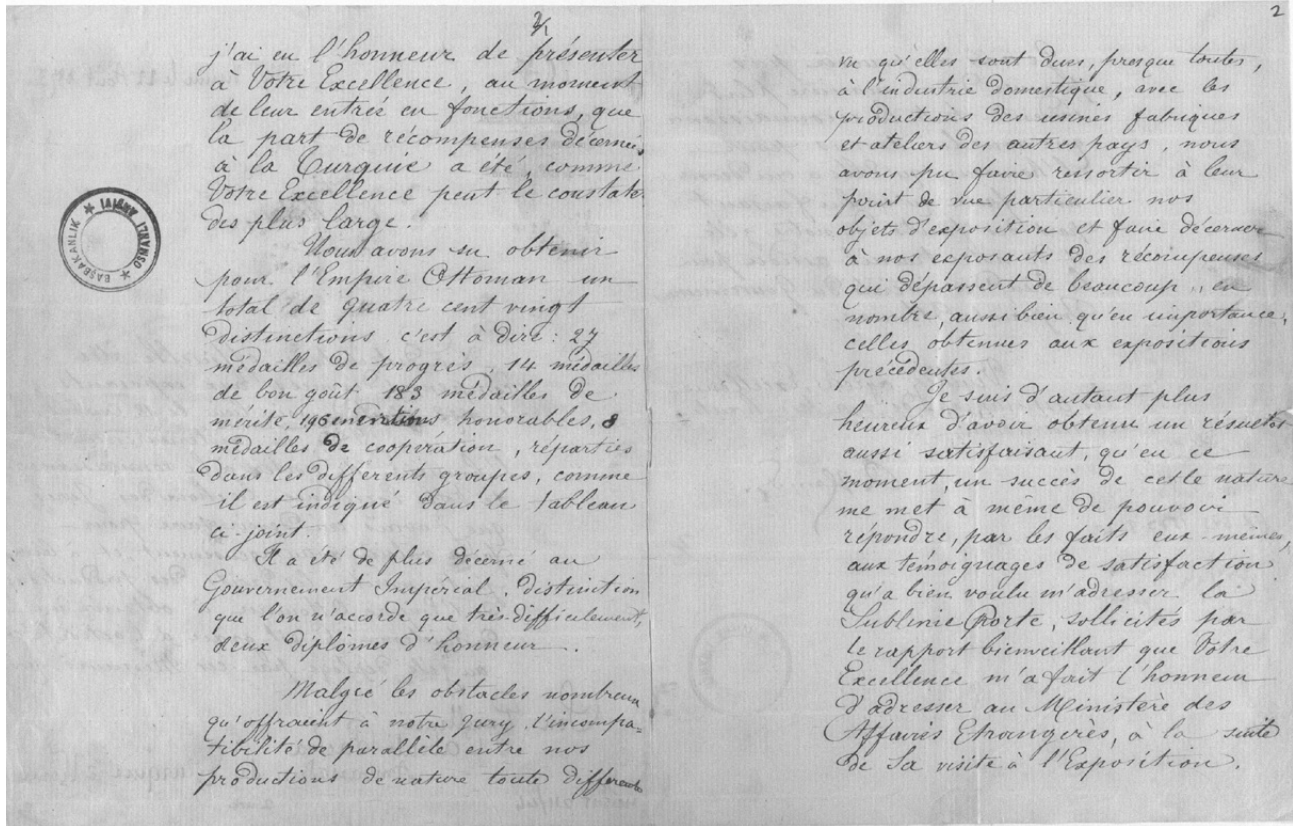 2/1
j'ai eu l'honneur de présenter
à Votre Excellence, au moment
de leur entrée en fonctions, que
la part de récompenses décernées
à la Turquie a été, comme
Votre Excellence peut le constater
des plus large.
Nous avons su obtenir
pour l'Empire Ottoman un
total de quatre cent vingt
distinctions c'est à dire : 27
médailles de progrès, 14 médailles
de bon goût 183 médailles de
mérite, 196 mentions honorables, 8
médailles de coopération, réparties
dans les différents groupes, comme
il est indiqué dans le tableau
ci-joint.
Il a été de plus décerné au
Gouvernement Impérial, distinction
que l'on n'accorde que très-difficilement,
deux diplômes d'honneur.
Malgré les obstacles nombreux
qu'offraient à notre jury l'incompa-
tibilité de parallèle entre nos
productions de nature toute différente
OSMANLI ARŞİVİ
BAŞBAKANLIK
2
vu qu'elles sont dues, presque toutes,
à l'industrie domestique, avec les
productions des usines fabriques
et ateliers des autres pays, nous
avons pu faire ressortir à leur
point de vue particulier nos
objets d'exposition et faire décerner
à nos exposants des récompenses
qui dépassent de beaucoup, en
nombre, aussi bien qu'en importance,
celles obtenues aux expositions
précédentes.
Je suis d'autant plus
heureux d'avoir obtenu un résultat
aussi satisfaisant, qu'en ce
moment, un succès de cette nature
me met à même de pouvoir
répondre, par les faits eux-mêmes,
aux témoignages de satisfaction
qu'a bien voulu m'adresser la
Sublime Porte, sollicités par
le rapport bienveillant que Votre
Excellence m'a fait l'honneur
d'adresser au Ministère des
Affaires Etrangères, à la suite
de Sa visite à l'Exposition.